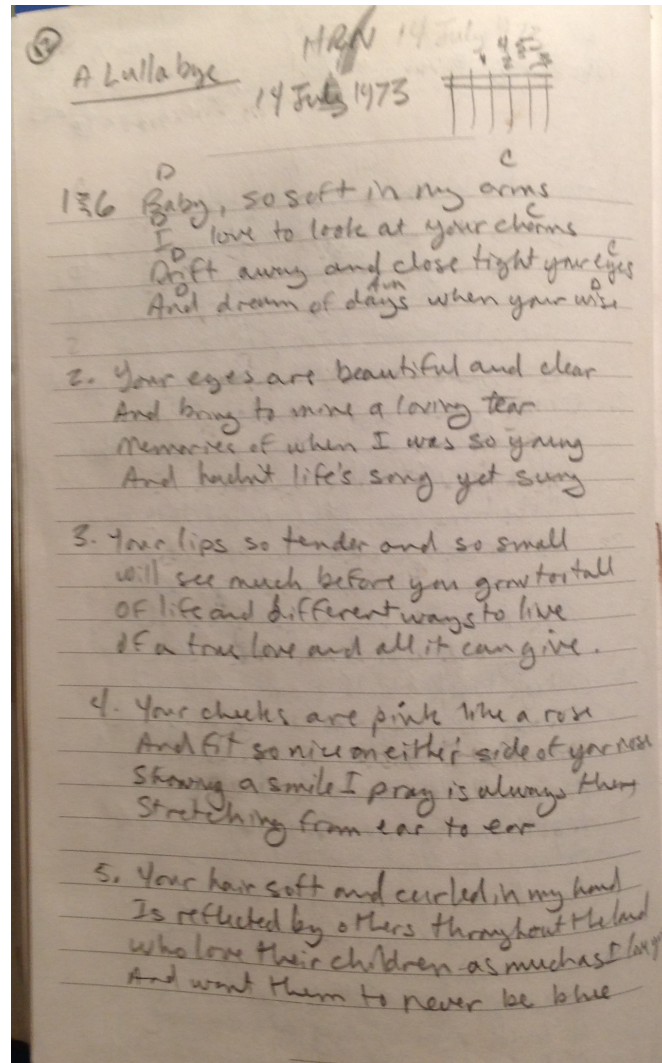 A Lullabye
MRN 14 July
14 July 1973
D C
1 & 6 Baby, so soft in my arms
D C
I love to look at your charms
D C
Drift away and close tight your eyes
D Am D
And dream of days when your wise
2. Your eyes are beautiful and clear
And bring to mine a loving tear
Memories of when I was so young
And hadn't life's song yet sung
3. Your lips so tender and so small
will see much before you grow too tall
Of life and different ways to live
Of a true love and all it can give.
4. Your cheeks are pink like a rose
And fit so nice on either side of your nose
Showing a smile I pray is always there
Stretching from ear to ear
5. Your hair soft and curled in my hand
Is reflected by others throughout the land
Who love their children as much as I love
And want them to never be blue